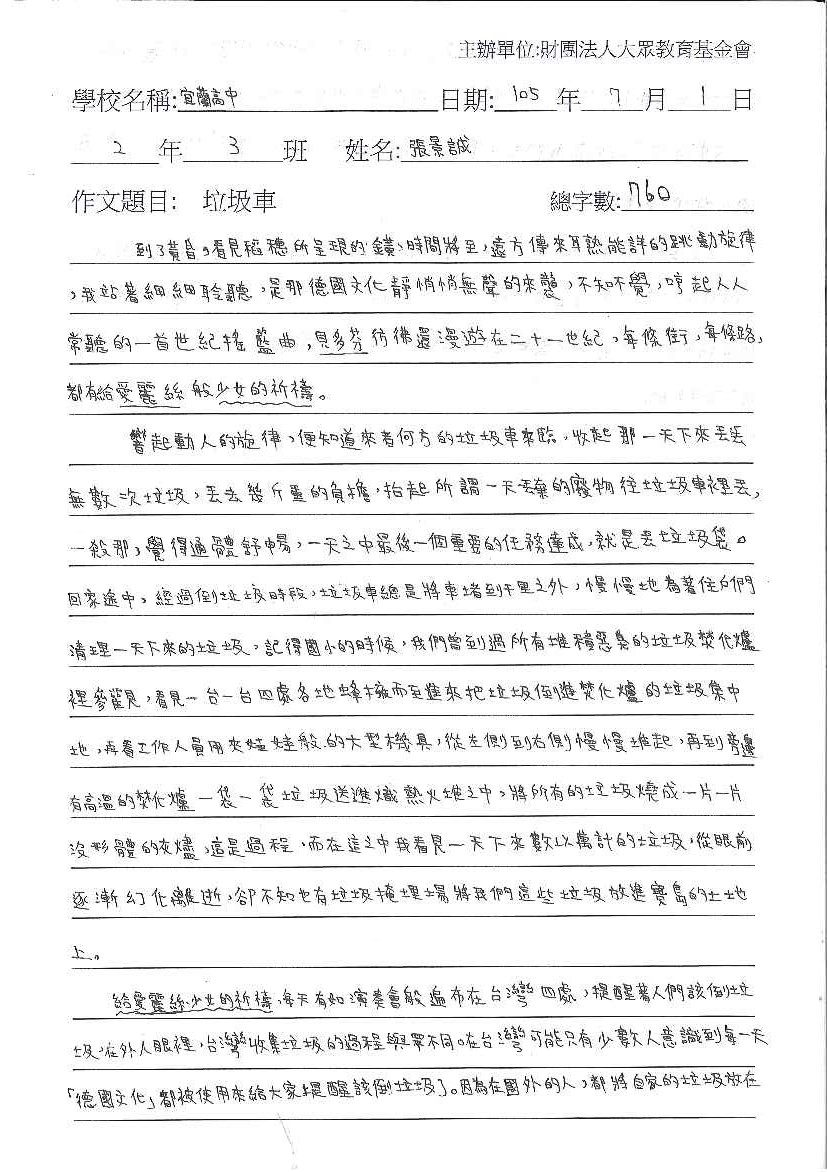 主辦單位:財團法人大眾教育基金會
學校名稱:宜蘭高中 日期: 105 年 7 月 1 日
2 年 3 班 姓名: 張景誠
作文題目: 垃圾車 總字數: 760
到了黃昏,看見稻穗所呈現的鐵、時間將至,遠方傳來耳熟能詳的跳動旋律
,我站著細細聆聽,是那德國文化靜悄悄無聲的來襲,不知不覺,哼起人人
常聽的一首世紀搖藍曲,貝多芬彷彿還漫遊在二十一世紀,每條街,每條路,
都有給愛麗絲般少女的祈禱。
響起動人的旋律,便知道來者何方的垃圾車來臨,收起那一天下來丟丟
無數次垃圾,丟去幾斤重的負擔,抬起所謂一天丟棄的廢物往垃圾車裡丟,
一殺那,覺得通體舒暢,一天之中最後一個重要的任務達成,就是丟垃圾袋。
回家途中,經過倒垃圾時段,垃圾車總是將車堵到千里之外,慢慢地為著住戶們
清理一天下來的垃圾,記得國小的時候,我們曾到過所有堆積惡臭的垃圾焚化爐
裡參觀,看見一台一台四處各地蜂擁而至進來把垃圾倒進焚化爐的垃圾集中
地,再看工作人員用夾娃娃般的大型機具,從左側到右側慢慢堆起,再到旁邊
有高溫的焚化爐一袋一袋垃圾送進熾熱火堆之中,將所有的垃圾燒成一片一片
沒形體的灰燼,這是過程,而在這之中我看見一天下來數以萬計的垃圾,從眼前
逐漸幻化離逝,卻不知也有垃圾掩埋場將我們這些垃圾放進寶島的土地
上。
給愛麗絲少女的祈禱,每天有如演奏會般遍布在台灣四處,提醒著人們該倒垃
圾,在外人眼裡,台灣收集垃圾的過程與眾不同。在台灣可能只有少數人意識到每一天
「德國文化」都被使用來給大家提醒該倒垃圾」。因為在國外的人,都將自家的垃圾放在